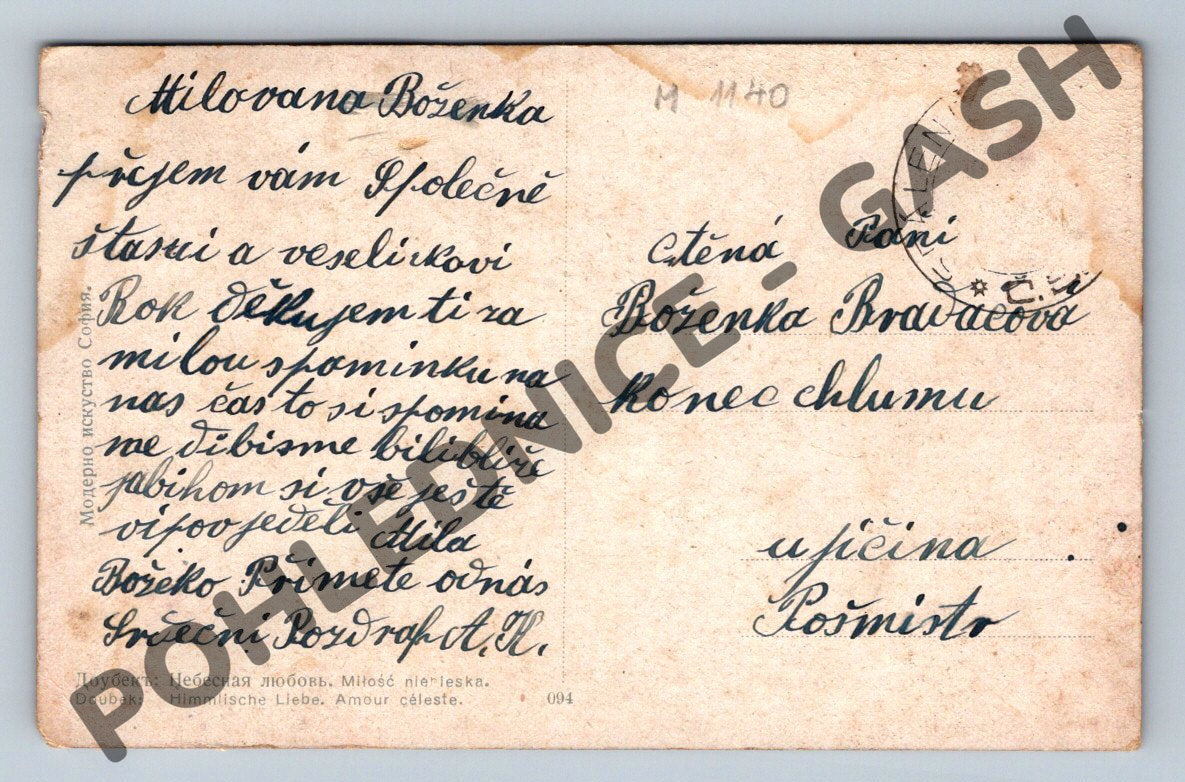 Milovana Boženka
přejem vám Společně
štasni a veselickovi
Rok děkujem ti za
milou spaminku na
nas často si spomina
me dibisme bili blíže
jabihom si vše ještě
vipovjeďeli Mila
Božeko Přimete odnás
Srdečni Pozdraf A. K.
M 1140
Ctěná Pani
Boženka
konec chlumu
u jičina
Pošmistr
* Č.
Модерно искуство София.
Доубект: Небесная любовь. Miłość niebieska.
Doubek: Himmlische Liebe. Amour céleste. 094
POHLEDNICE - GASH